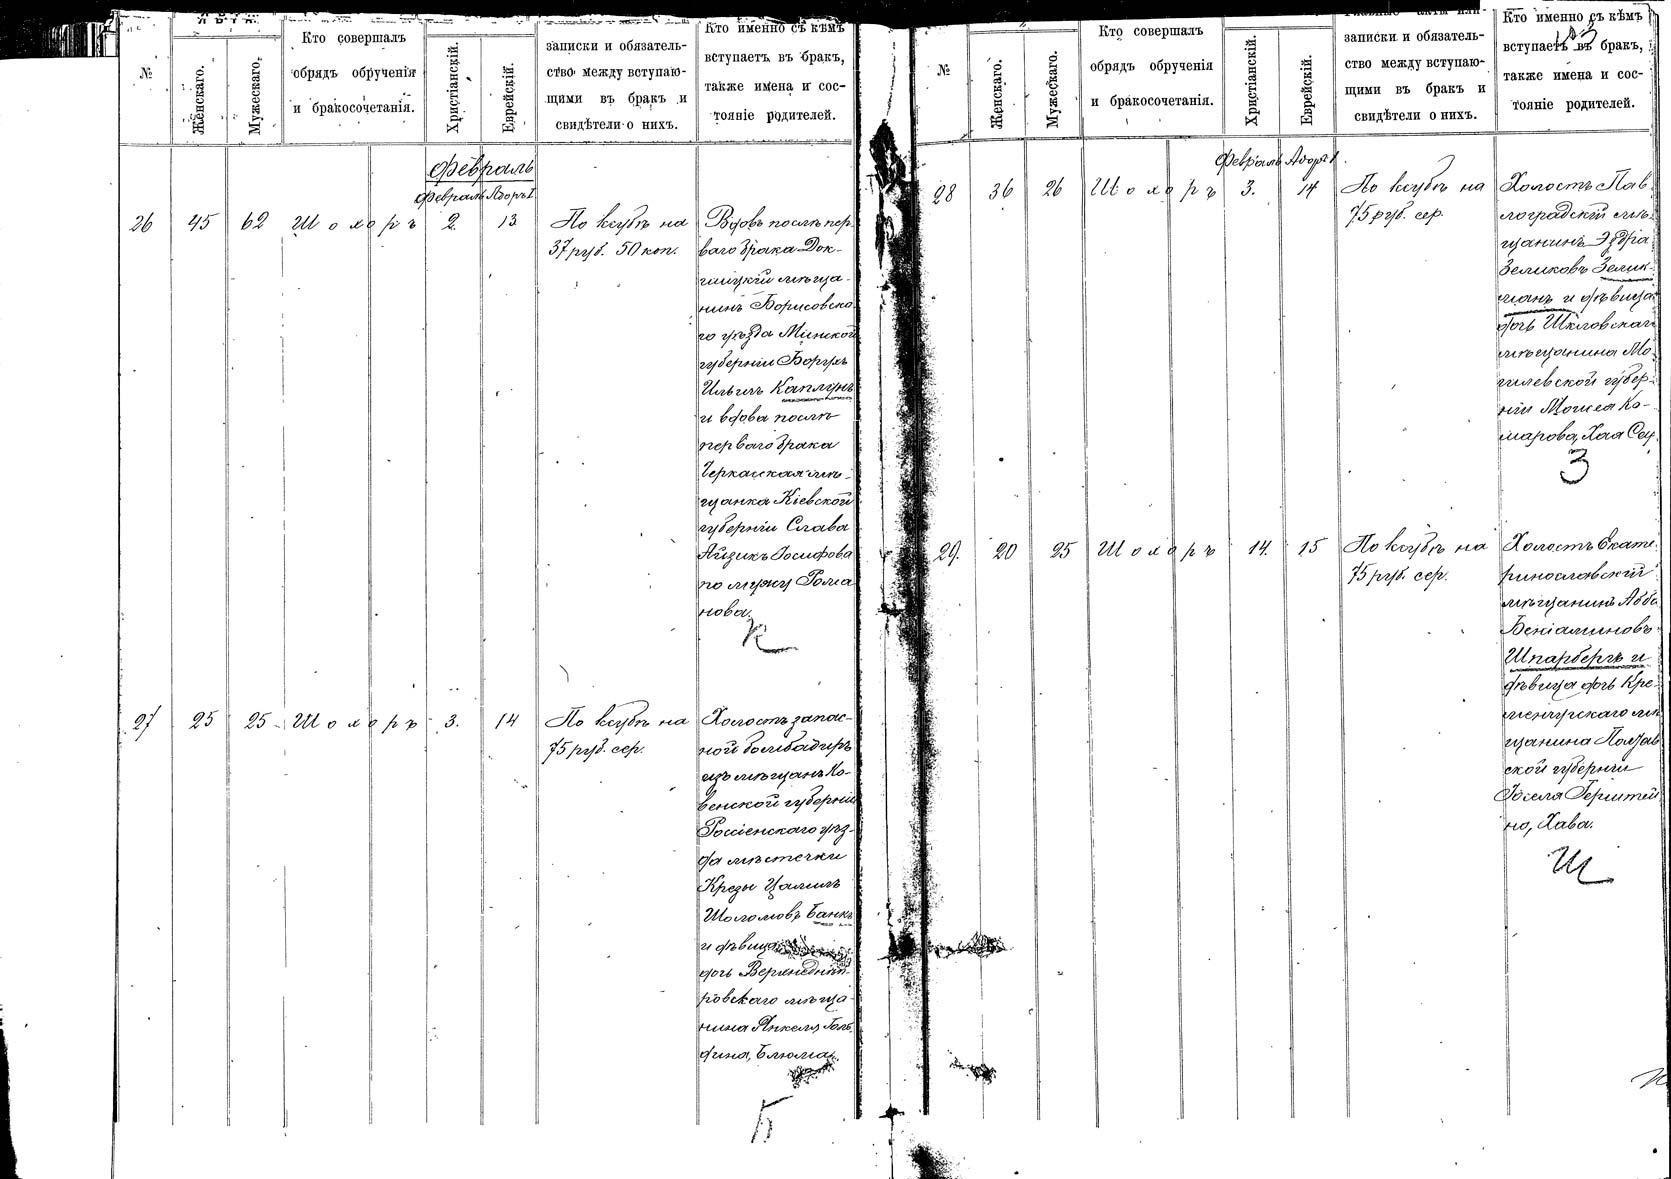 ЛѢТА.
№
Женскаго.
Мужескаго.
Кто совершалъ
обрядъ обрученія
и бракосочетанія.
Христіанскій.
Еврейскій.
записки и обязатель-
ство между вступаю-
щими въ бракъ и
свидѣтели о нихъ.
Кто именно съ кѣмъ
вступаетъ въ бракъ,
также имена и сос-
тояніе родителей.
Февраль
Февраль Адоръ I
26 45 62 Шохоръ 2. 13
По ксубѣ на
37 руб. 50 коп.
Вдовъ послѣ пер-
ваго брака Док-
шицкій мѣща-
нинъ Борисовска-
го уѣзда Минской
губерніи Борухъ
Ильинъ Каплунъ
и вдова послѣ
перваго брака
Черкасская мѣ-
щанка Кіевской
губерніи Слава
Айзикъ Іосифова
по мужу Рома
нова.
К
27 25 25 Шохоръ 3. 14
По ксубѣ на
75 руб. сер.
Холостъ запас-
ной бомбадиръ
изъ мѣщанъ Ко-
венской губерніи
Россіенскаго уѣз-
да мѣстечки
Крезы
Шоломовъ Банкъ
и дѣвица
дочь Верхнеднѣп-
ровскаго мѣща-
нина Янкеля Голь-
дина, Блюма.
Б
№
Женскаго.
Мужескаго.
Кто совершалъ
обрядъ обрученія
и бракосочетанія.
Христіанскій.
Еврейскій.
записки и обязатель-
ство между вступаю-
щими въ бракъ и
свидѣтели о нихъ.
Кто именно съ кѣмъ
вступаетъ въ бракъ,
также имена и сос-
тояніе родителей.
Февраль Адоръ I
28 36 26 Шохоръ 3. 14
По ксубѣ на
75 руб. сер.
Холостъ Пав-
лоградскій мѣ-
щанинъ Эздріа
Зеликовъ Зелик-
манъ и дѣвица
дочь Шкловскаго
мѣщанина Мо-
гилевской губер-
ніи Мошея Ко-
марова, Хая
З
29. 20 25 Шохоръ 14. 15
По ксубѣ на
75 руб. сер.
Холостъ Екате-
ринославскій
мѣщанинъ Абба
Беніаминовъ
Шпарбергъ и
дѣвица дочь Кре-
менчугскаго мѣ
щанина Полтав
ской губерніи
Іоселя Герштей
на, Хава.
Ш